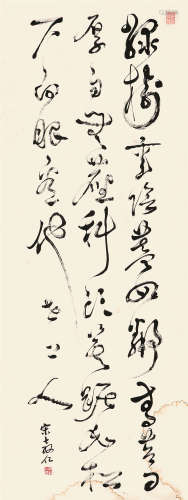 綠樹重陰蓋四鄰青苔日
厚自無塵科頭箕踞長松
下白眼看他世上人
宋仁